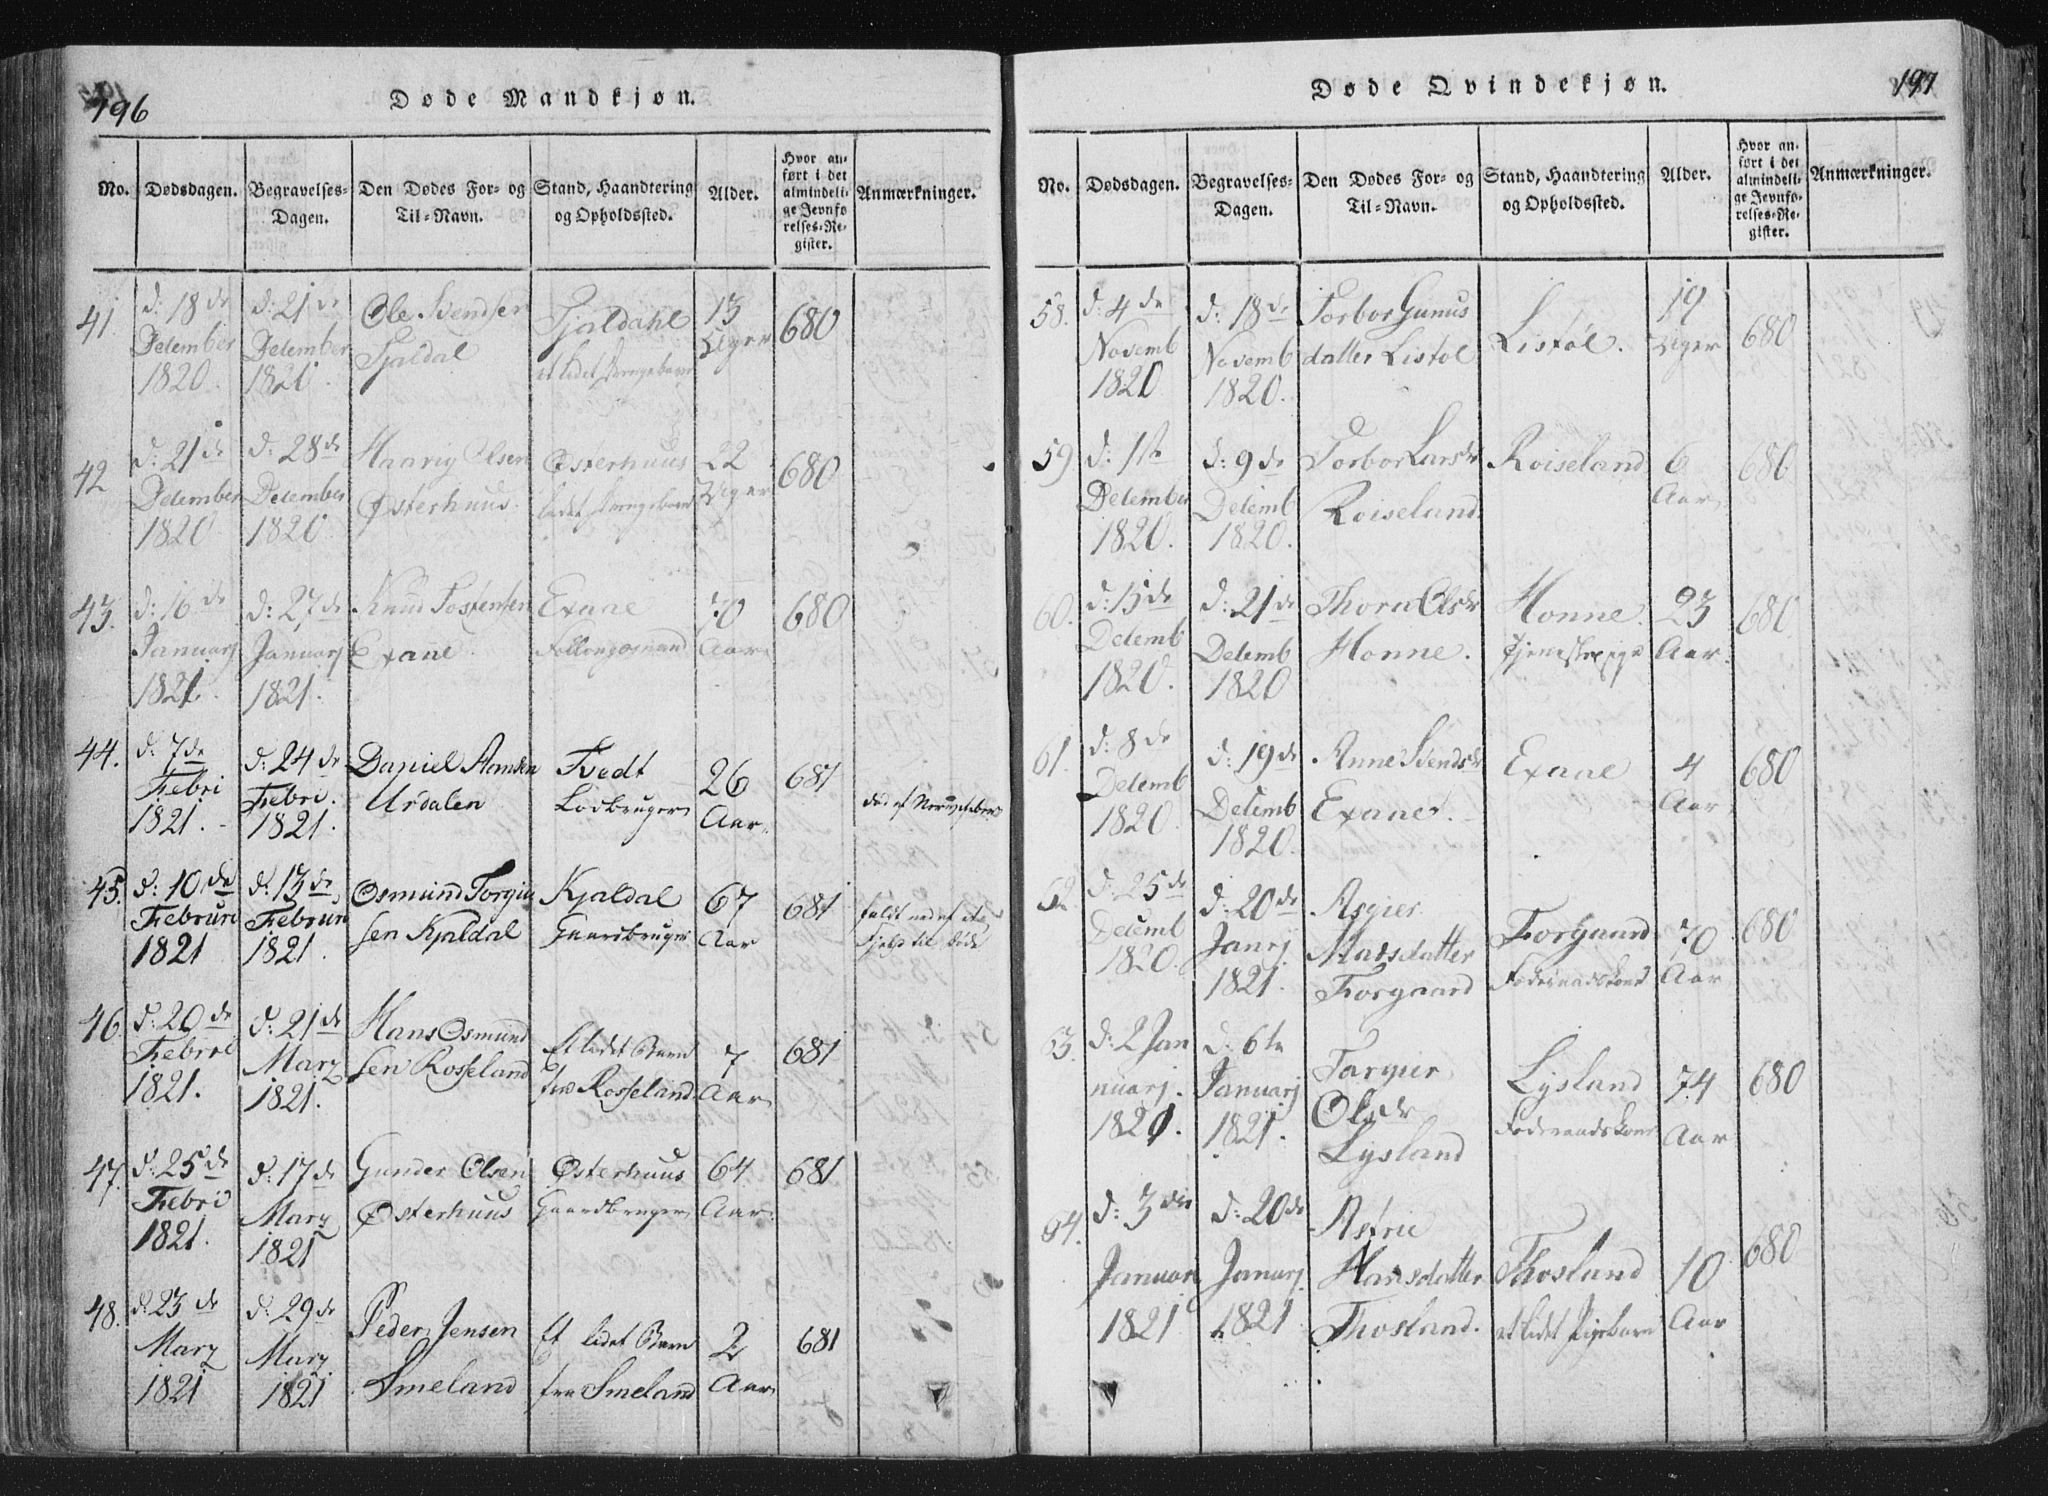 196
Døde Mandkjøn.
No. Dødsdagen. Begravelses-Dagen. Den Dødes For- og Til-Navn. Stand, Haandtering og Opholdssted. Alder. Hvor anført i det almindelige Jevnførelses-Register. Anmærkninger.
41 d: 18de December 1820. d: 21de December 1820. Ole Svendsen Fjaldal Fjaldahl et lidet Drengebarn 13 Uger 680
42 d: 21de December 1820 d: 28de December 1820 Haavig Olsen Østerhuus. Østerhuus lidet Drengebarn 22 Uger 680
43. d: 16de Januarj 1821. d: 27de Januarj 1821. Knud Tostensen Exane Exane 70 Aar. 680
44. d: 7de Febri 1821. d: 24de Febri. 1821. Daniel Hansen Urdalen Tvedt Lodbruger 26 Aar. 681 død af
45. d: 10de Februri 1821 d: 13de Februri 1821. Osmund Torgiusen Kjaldal Kjaldal Gaardbruger 67 Aar 681 faldt ned af
46. d: 20de Febrri 1821. d: 21de Marz 1821. Hans Osmundsen Rosseland Et lidet Barn fra Rosseland 7 Aar 681
47. d: 25de Febri 1821. d: 17de Marz 1821 Gunder Olsen Østerhuus Østerhuus Gaardbruger 64 Aar. 681
48. d: 23de Marz 1821 d: 29de Marz 1821 Peder Jensen Smeland Et lidet Barn fra Smeland 2 Aar 681
197
Døde Qvindekjøn.
No. Dødsdagen. Begravelses-Dagen. Den Dødes For- og Til-Navn. Stand, Haandtering og Opholdssted. Alder. Hvor anført i det almindelige Jevnførelses-Register. Anmærkninger.
58. d: 4de Novemb 1820 d: 18de Novemb 1820. Torbor Gunusdatter Listøl Listøl. 19 Uger 680
59 d: 1ste December 1820. d: 9de Decemb 1820. Torbor Larsdr Roiseland. Roiseland 6 Aar 680
60. d: 15de Decemb 1820. d: 21de Decemb 1820 Thorn Olsdr Honne. Honne. Tjenestepige 23 Aar. 680
61. d: 8de Decemb 1820. d: 19de Decemb 1820. Anne Svendsdr Exane. Exane 4 Aar 680
62 d: 25de Decemb 1820. d: 20de Janrj 1821. Asgier Hansdatter Forgaard Forgaard Føderaadskone 70 Aar 680
63. d: 2 Januarj. 1821. d: 6te Januarj 1821. Targier Olsdr Lysland Lysland Føderaadskone 74 Aar 680
64. d: 3die Januari 1821 d: 20de Januarj. 1821 Astrie Hansdatter Thosland. Thosland et lidet Pigebarn 10 Aar 680